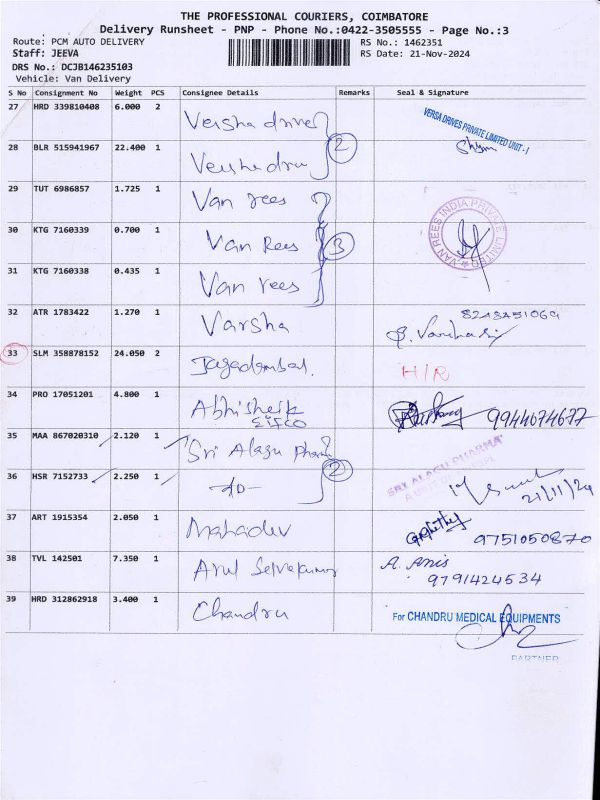 THE PROFESSIONAL COURIERS, COIMBATORE
Delivery Runsheet - PNP - Phone No.:0422-3505555 - Page No.:3
Route: PCM AUTO DELIVERY
RS No.: 1462351
Staff: JEEVA
RS Date: 21-Nov-2024
DRS No.: DCJB146235103
Vehicle: Van Delivery
S No Consignment No Weight PCS Consignee Details Remarks Seal & Signature
27 HRD 339810408 6.000 2 Versha drives VERSA DRIVES PRIVATE LIMITED UNIT - I
28 BLR 515941967 22.400 1 2
29 TUT 6986857 1.725 1 Van rees
30 KTG 7160339 0.700 1 Van Rees 3 VAN REES INDIA PRIVATE LIMITED
31 KTG 7160338 0.435 1 Van rees
32 ATR 1783422 1.270 1 Varsha
33 SLM 358878152 24.050 2 Jagadambal. H/R
34 PRO 17051201 4.800 1 Abhisheik 9944674677
35 MAA 867020310 2.120 1 Sri Alagu Pharm
36 HSR 7152733 2.250 1 -do- 2 SRI ALAGU PHARMA 21/11/24
37 ART 1915354 2.050 1 Mahadev 9751050870
38 TVL 142501 7.350 1 Arul Selvakumar A. Anis
9791424534
39 HRD 312862918 3.400 1 Chandru For CHANDRU MEDICAL EQUIPMENTS
PARTNER